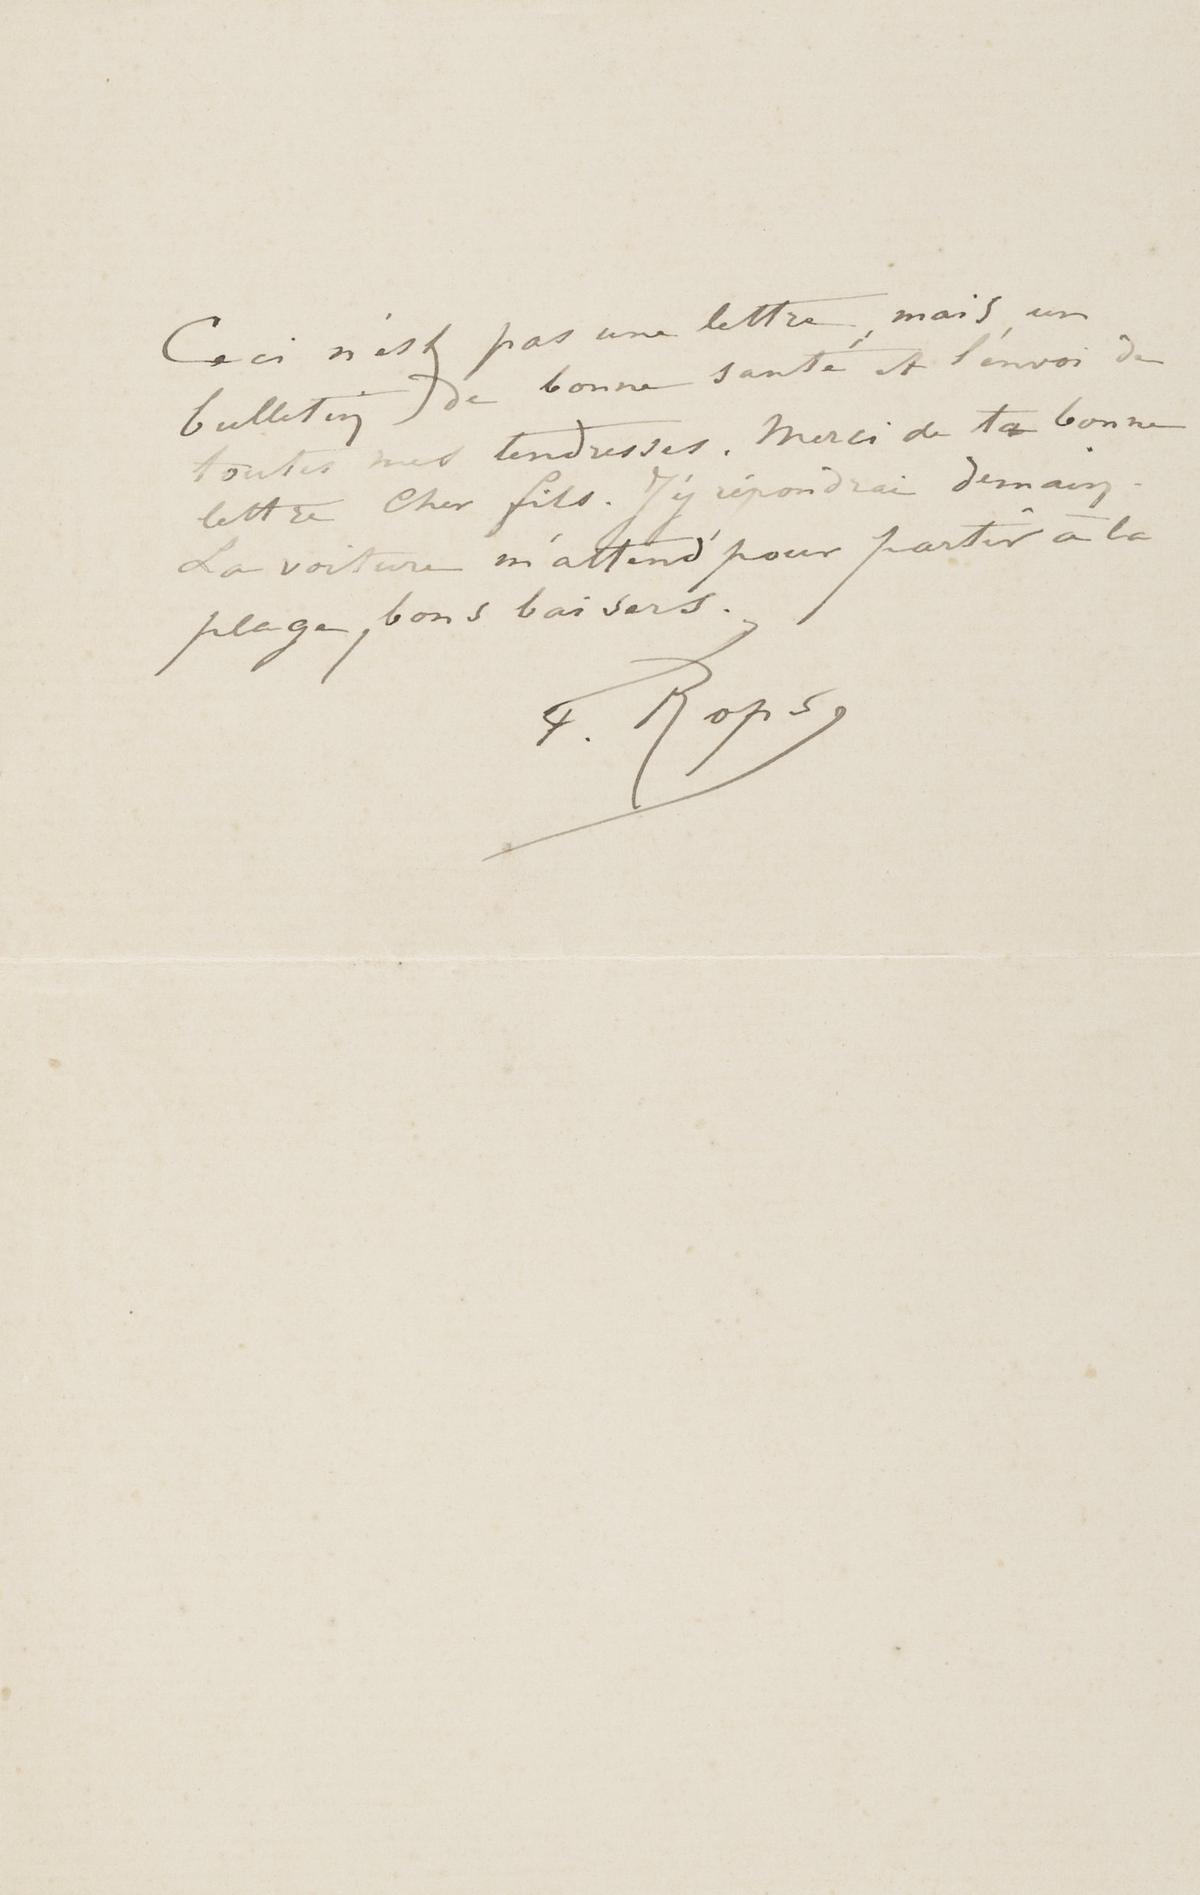 Ceci n'est pas une lettre, mais, un
bulletin de bonne santé et l'envoi de
toutes mes tendresses. Merci de ta bonne
lettre Cher fils. J'y répondrai demain.
La voiture m'attend pour partir à la
plage, bons baisers.
F. Rops